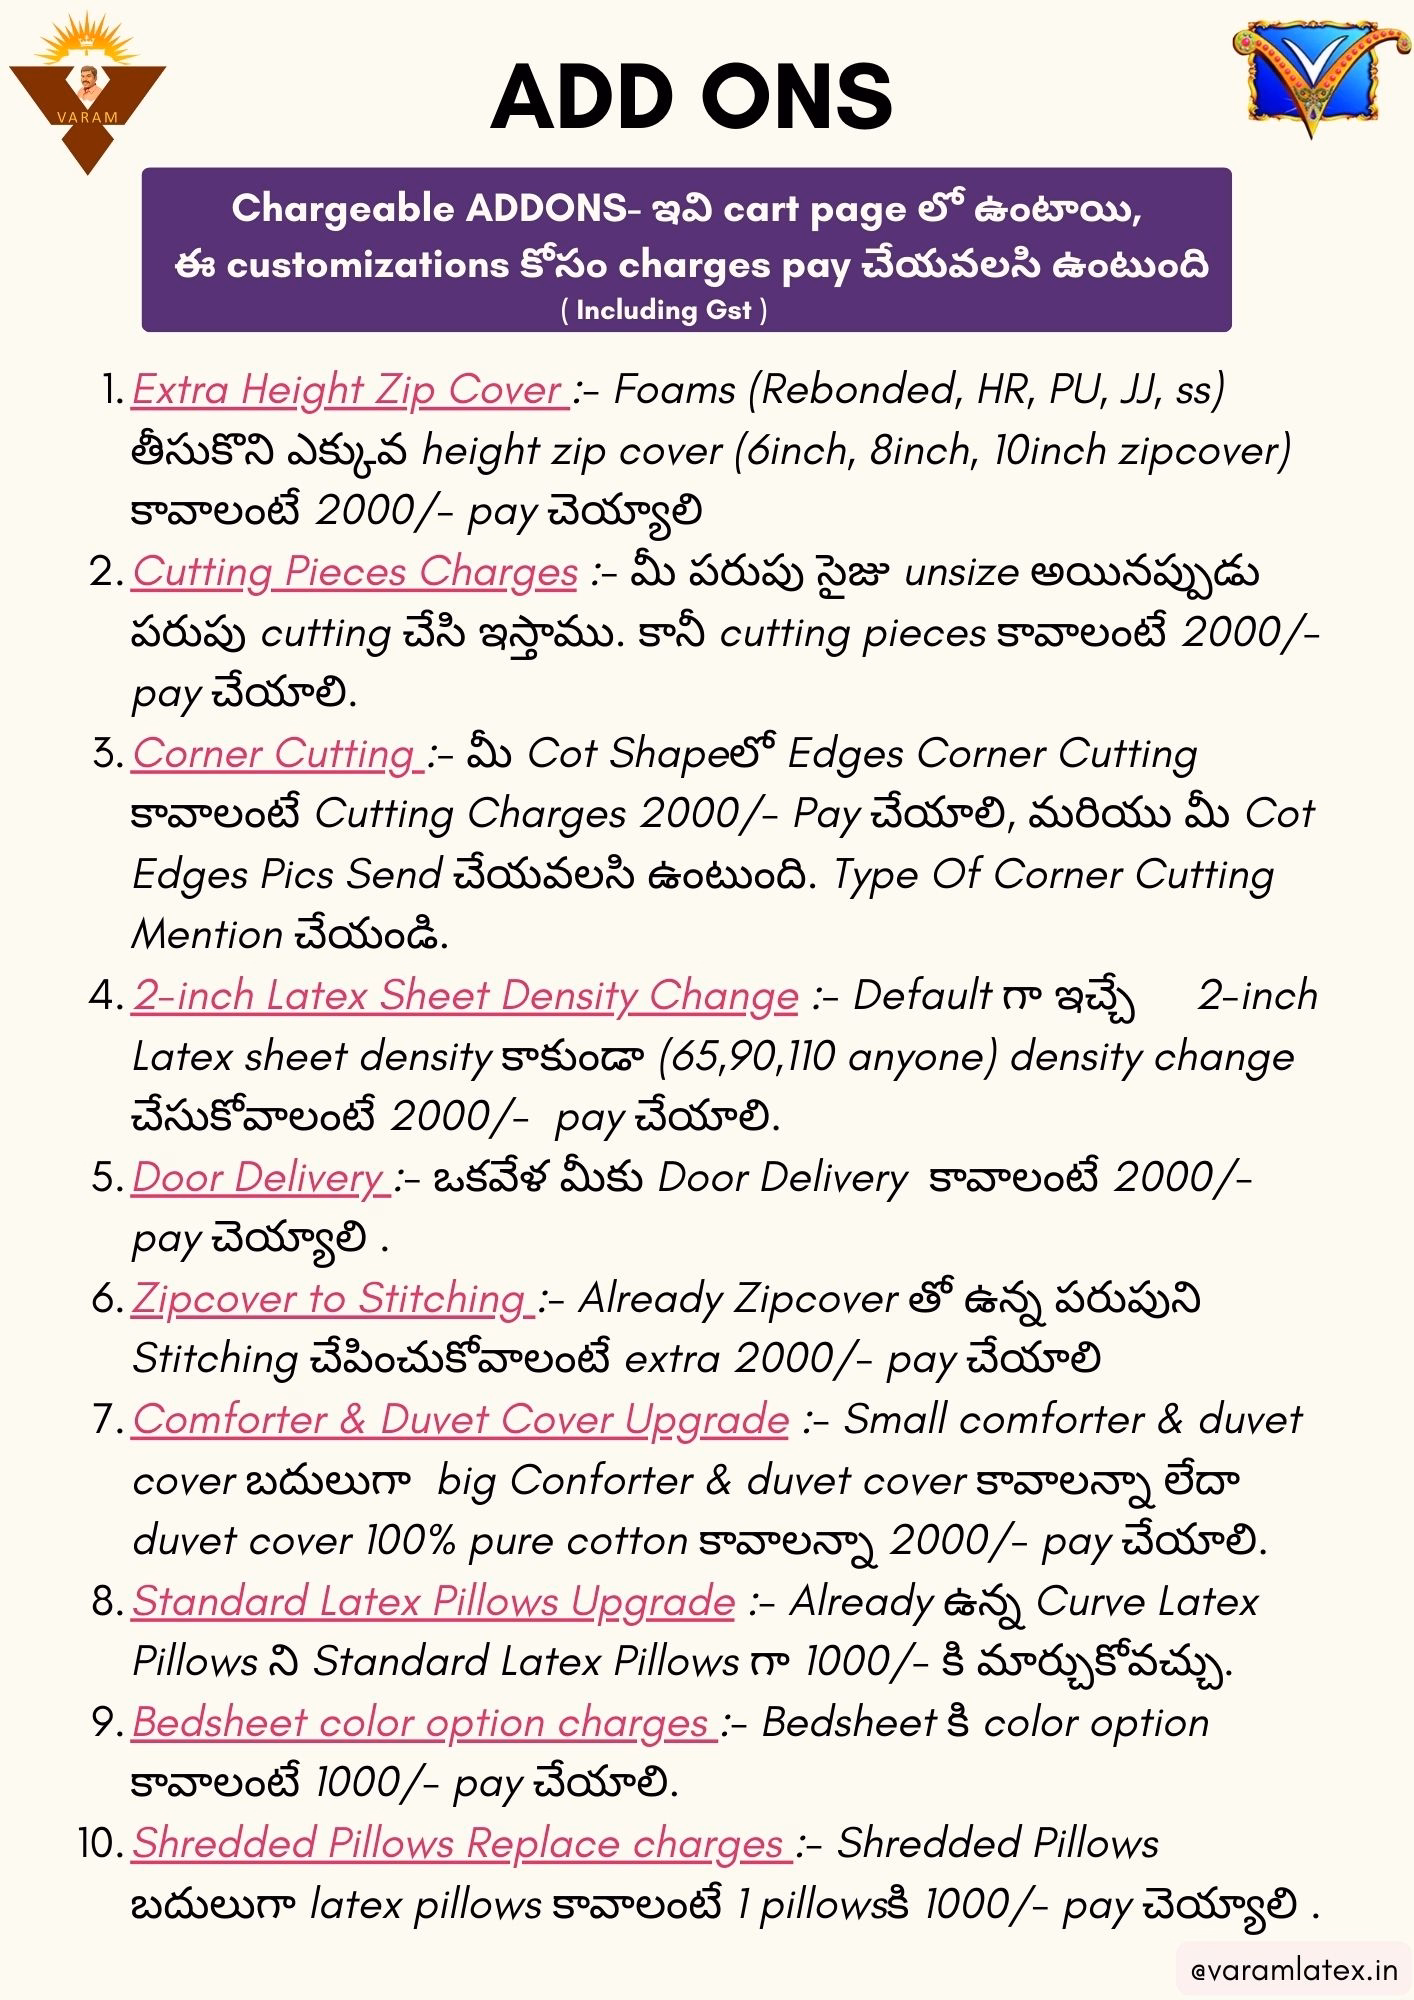 VARAM
ADD ONS
Chargeable ADDONS- ఇవి cart page లో ఉంటాయి,
ఈ customizations కోసం charges pay చేయవలసి ఉంటుంది
( Including Gst )
1. Extra Height Zip Cover :- Foams (Rebonded, HR, PU, JJ, ss)
తీసుకొని ఎక్కువ height zip cover (6inch, 8inch, 10inch zipcover)
కావాలంటే 2000/- pay చెయ్యాలి
2. Cutting Pieces Charges :- మీ పరుపు సైజు unsize అయినప్పుడు
పరుపు cutting చేసి ఇస్తాము. కానీ cutting pieces కావాలంటే 2000/-
pay చేయాలి.
3. Corner Cutting :- మీ Cot Shapeలో Edges Corner Cutting
కావాలంటే Cutting Charges 2000/- Pay చేయాలి, మరియు మీ Cot
Edges Pics Send చేయవలసి ఉంటుంది. Type Of Corner Cutting
Mention చేయండి.
4. 2-inch Latex Sheet Density Change :- Default గా ఇచ్చే 2-inch
Latex sheet density కాకుండా (65,90,110 anyone) density change
చేసుకోవాలంటే 2000/- pay చేయాలి.
5. Door Delivery :- ఒకవేళ మీకు Door Delivery కావాలంటే 2000/-
pay చెయ్యాలి .
6. Zipcover to Stitching :- Already Zipcover తో ఉన్న పరుపుని
Stitching చేపించుకోవాలంటే extra 2000/- pay చేయాలి
7. Comforter & Duvet Cover Upgrade :- Small comforter & duvet
cover బదులుగా big Conforter & duvet cover కావాలన్నా లేదా
duvet cover 100% pure cotton కావాలన్నా 2000/- pay చేయాలి.
8. Standard Latex Pillows Upgrade :- Already ఉన్న Curve Latex
Pillows ని Standard Latex Pillows గా 1000/- కి మార్చుకోవచ్చు.
9. Bedsheet color option charges :- Bedsheet కి color option
కావాలంటే 1000/- pay చేయాలి.
10. Shredded Pillows Replace charges :- Shredded Pillows
బదులుగా latex pillows కావాలంటే 1 pillowsకి 1000/- pay చెయ్యాలి .
@varamlatex.in